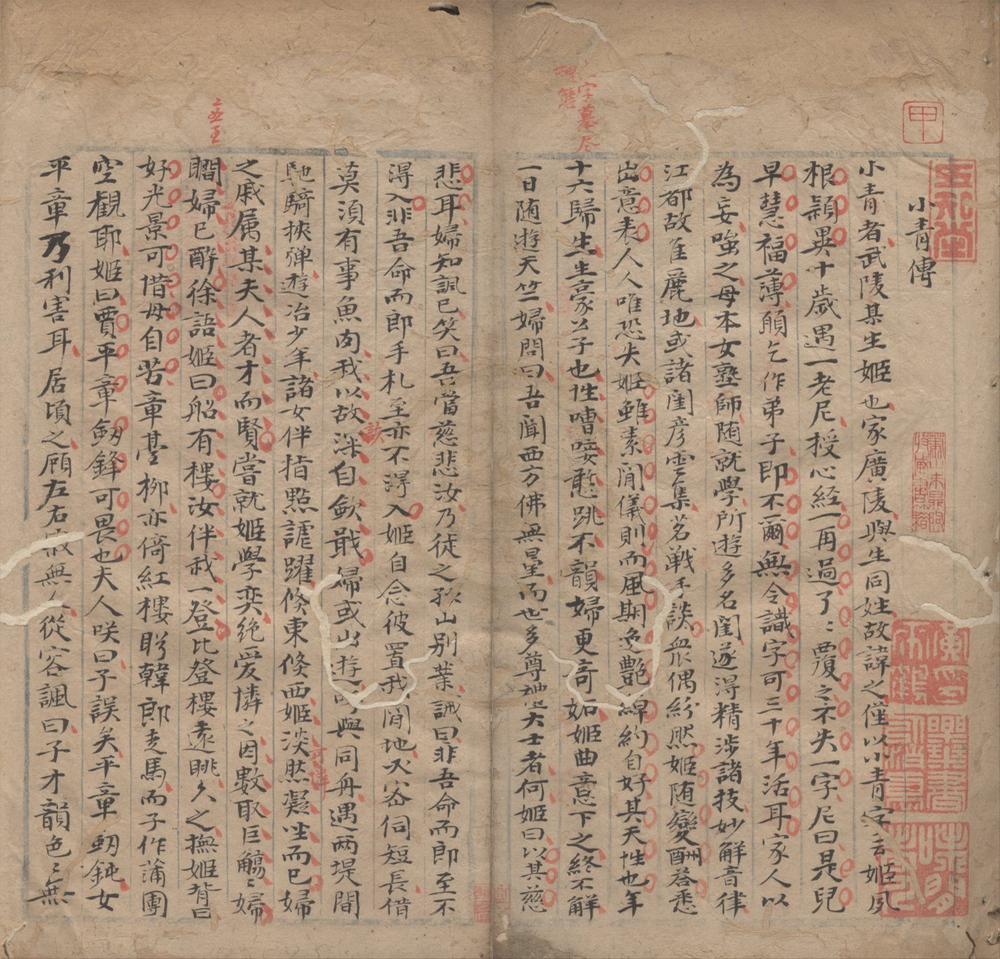 小青傳
小青者武陵某生姬也家廣陵與生同姓故諱之僅以小青字云姬夙
根穎異十歲遇一老尼授心經一再過了〻覆之不失一字尼曰是兒
早慧福薄願乞作弟子即不爾無令識字可三十年活耳家人以
為妄嗤之母本女塾師隨就學所遊多名閨遂得精涉諸技妙解音律
江都故佳麗地或諸閨彥雲集茗戰手談眾偶紛然姬隨變酬答悉
出意表人人唯恐失姬雖素閒儀則而風期逸艷綽約自好其天性也年
十六歸生生豪公子也性嘈唼憨跳不韻婦更奇妬姬曲意下之終不解
一日随遊天竺婦問曰吾聞西方佛無量而世多尊禮大士者何姬曰以其慈
悲耳婦知諷已笑曰吾當慈悲汝乃徒之孤山別業誡曰非吾命而郎至不
得入非吾命而郎手札至亦不得入姬自念彼置我閒地必密伺短長借
莫須有事魚肉我以故深自歛戢婦或出遊 與同舟遇兩堤間
馳騎挾彈遊冶少年諸女伴指點謔躍倏東倏西姬淡然凝坐而已婦
之戚屬某夫人者才而賢嘗就姬學奕絶愛憐之因數取巨觴〻婦
瞷婦已醉徐語姬曰船有樓汝伴我一登比登樓遠眺久之撫姬背曰
好光景可惜毋自苦章臺柳亦倚紅樓盼韓郎走馬而子作蒲團
空觀耶姬曰賈平章劒鋒可畏也夫人咲曰子誤矣平章劒鈍女
平章乃利害耳居頃之顧左右寂無人從容諷曰子才韻色〻無
甲